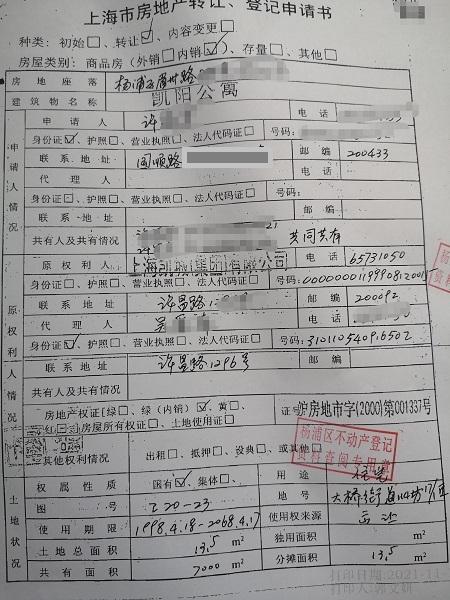 上海市房地产转让、登记申请书
种类：初始□、转让☑、内容变更□
房屋类别：商品房（外销□内销☑）、存量□、其他□
房地坐落 杨浦区眉州路
建筑物名称 凯阳公寓
申请人情况
申请人 许 电话
身份证☑、护照□、营业执照□、法人代码证□ 号码:
联系地址 国顺路 邮编 200433
代理人 电话
身份证□、护照□、营业执照□、法人代码证□ 号码:
联系地址 邮编
共有人及共有情况 共同共有
原权利人情况
原权利人 上海 集团有限公司 电话 65731050
身份证□、护照□、营业执照□、法人代码证□ 号码:
联系地址 许昌路 邮编 200092
代理人 吴 电话
身份证☑、护照□、营业执照□、法人代码证□ 号码:
联系地址 许昌路1296号 邮编
共有人及共有情况
房地产权证[绿□、绿（内销）☑、黄□、
红□]房屋所有权证□、土地使用证□
证号 沪房地市字(2000)第001337号
其他权利情况 出租□、抵押□、设典□、或其他
杨浦区不动产登记
资料查阅专用章
土地状况
权属性质 国有☑、集体□ 用途
图号 220-23 地号
使用期限 1998.4.18-2068.4.17 使用权来源
土地总面积 13.5 m² 独用面积 m²
共有面积 7000 m² 分摊面积 13.5 m²
打印日期:2021-11-
打印人:郭文妍